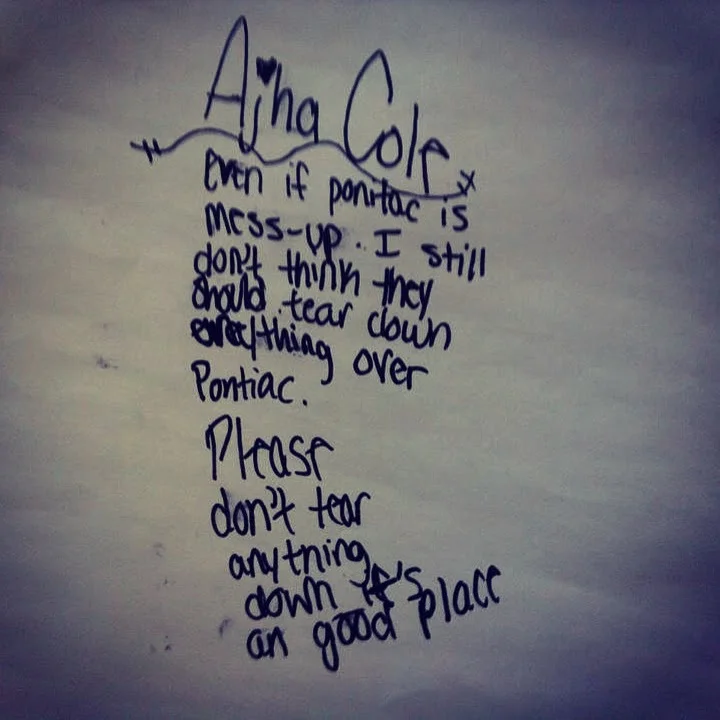 Ajha Cole
even if ponitac is
mess-up. I still
don't think they
should tear down
everything over
Pontiac.
Please
don't tear
anytning
down it's
an good place